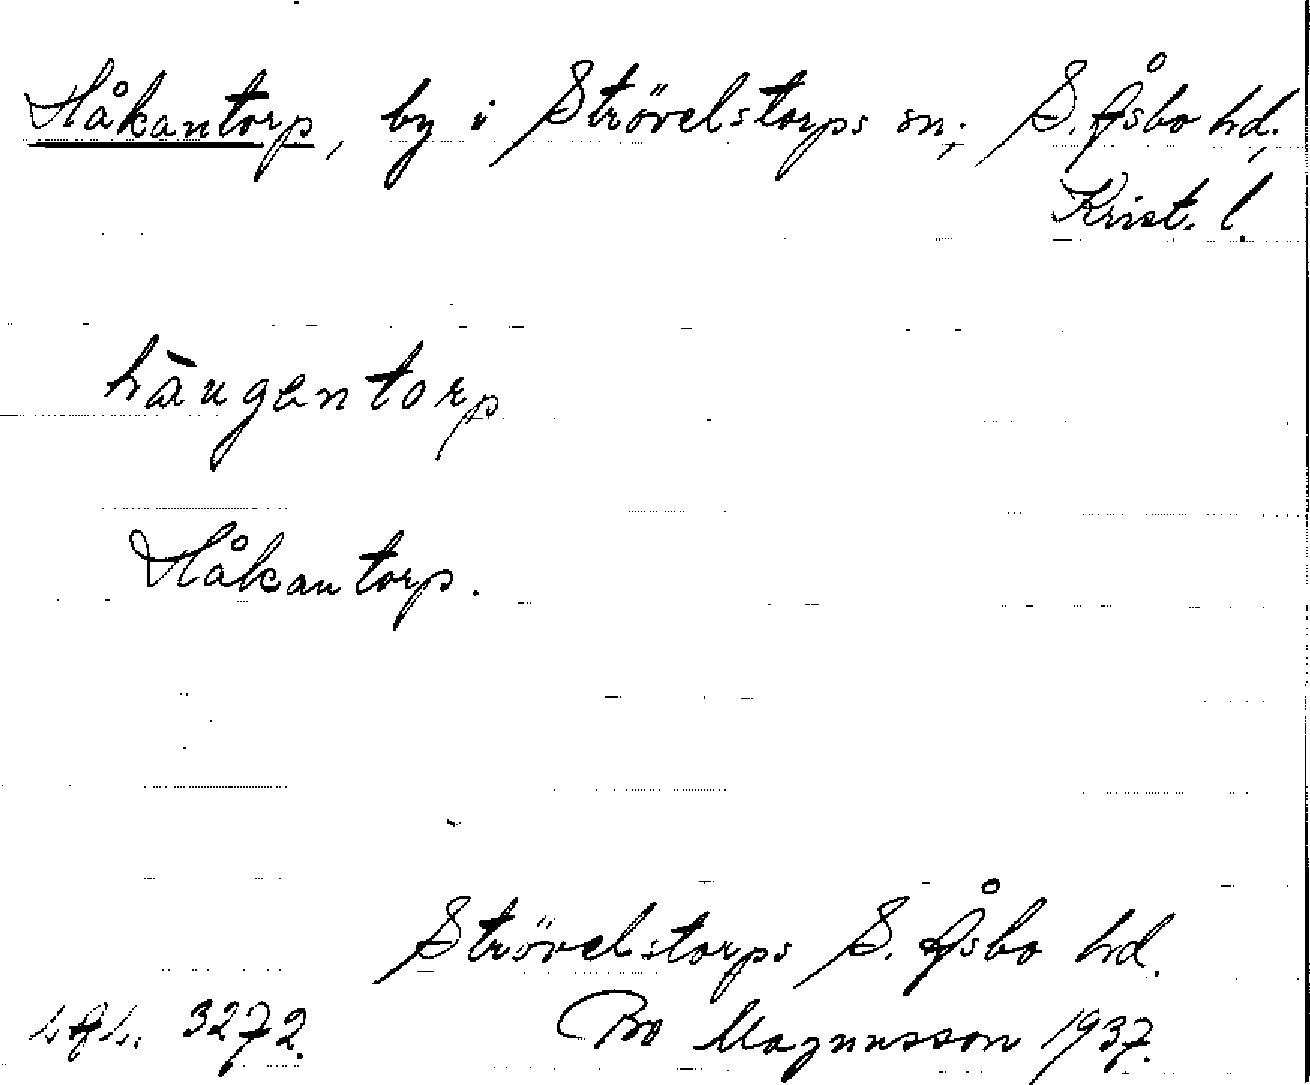 Håkantorp, by i Strövelstorps sn, S. Åsbo hd,
Krist. l.
hāugentorp
Håkantorp.
Strövelstorps S. Åsbo hd.
3272. Bo Magnusson 1937.